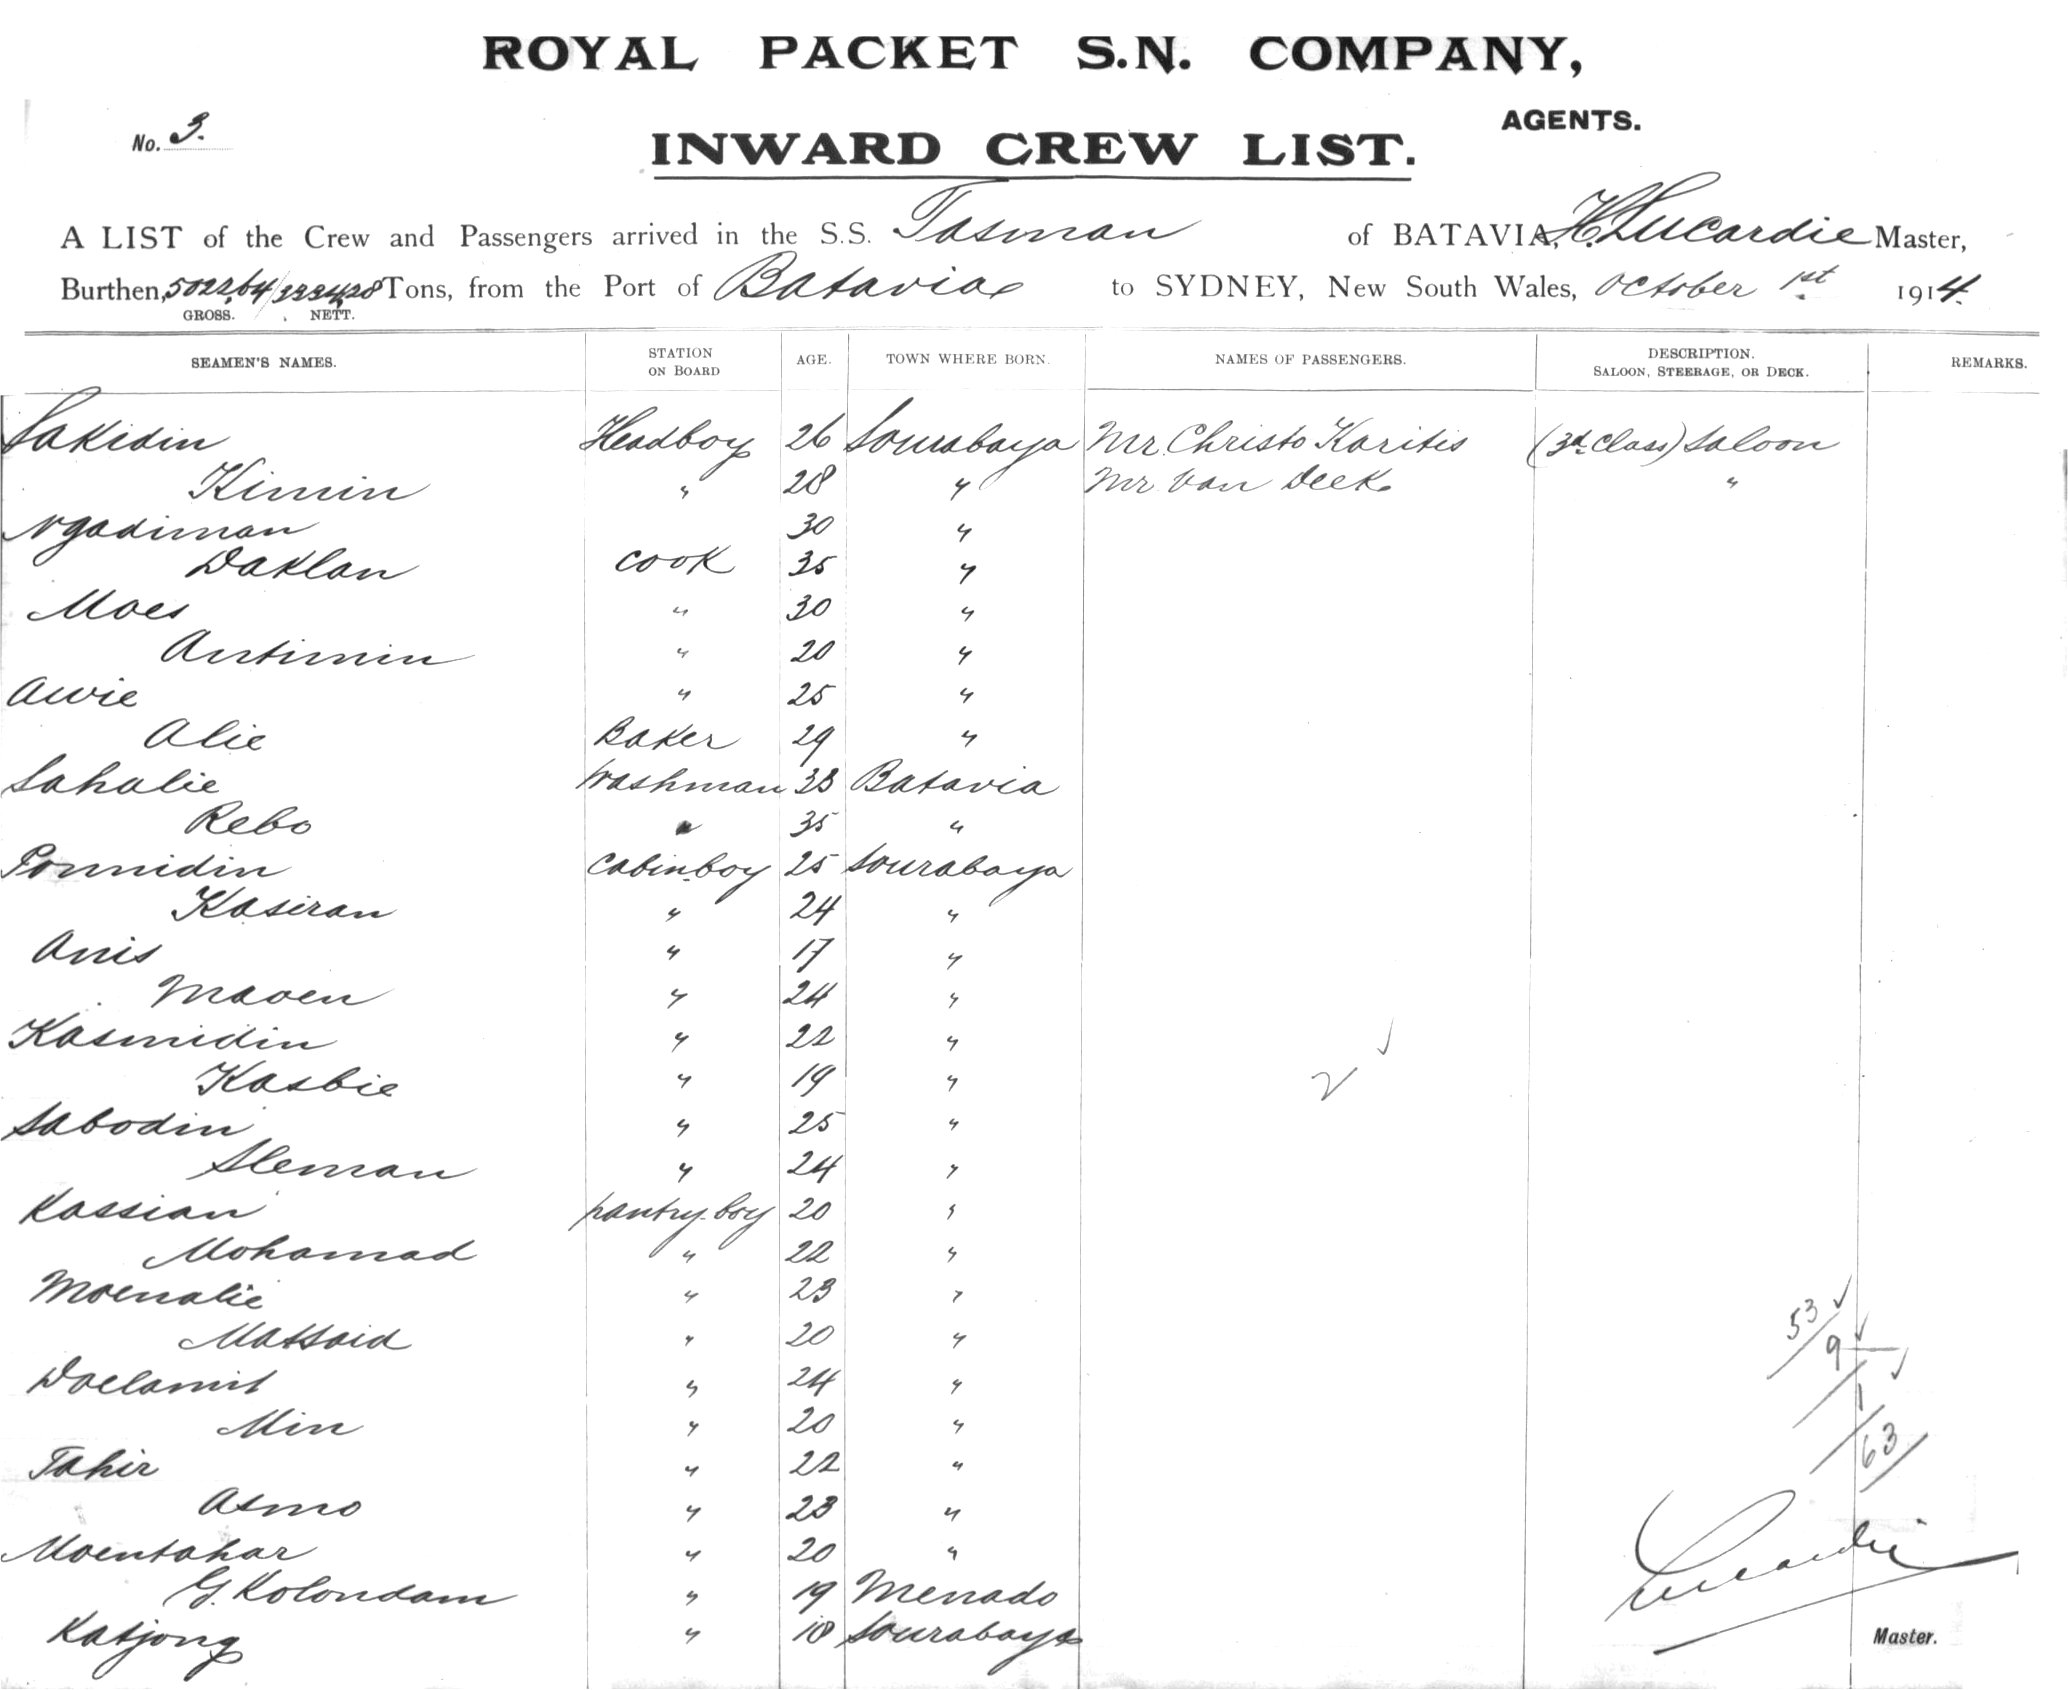 ROYAL PACKET S.N. COMPANY,
AGENTS.
No. 3.
INWARD CREW LIST.
A LIST of the Crew and Passengers arrived in the S.S. Tasman of BATAVIA, H. Lucardie Master,
Burthen, 5022,64/ Tons, from the Port of Batavia to SYDNEY, New South Wales, October 1st 1914.
GROSS. NETT.
SEAMEN'S NAMES. STATION ON BOARD AGE. TOWN WHERE BORN. NAMES OF PASSENGERS. DESCRIPTION. SALOON, STEERAGE, OR DECK. REMARKS.
Sakidin Headboy 26 Sourabaya Mr. Christo Karitis (3d. Class) Saloon
Kimin " 28 " Mr. Van Deek "
Ngadiman 30 "
Daklan Cook 35 "
Moes " 30 "
Antimin " 20 "
Awie " 25 "
Alie Baker 29 "
Sahalie Washman 33 Batavia
Rebo " 35 "
Ponnidin Cabinboy 25 Sourabaya
Kasiran " 24 "
Anis " 17 "
Maoen " 24 "
Kasmidin " 22 "
Kasbie " 19 " 2
Sabodin " 25 "
Sleman " 24 "
Kassian pantry-boy 20 "
Mohamad " 22 "
Moenalie " 23 "
Matsaid " 20 "
Doelamit " 24 "
Min " 20 "
Tahir " 22 "
Asmo " 23 "
Moentahar " 20 "
G. Kolondam " 19 Menado
Katjong " 18 Sourabaya
53/
9/
1/
63/
Lucardie
Master.